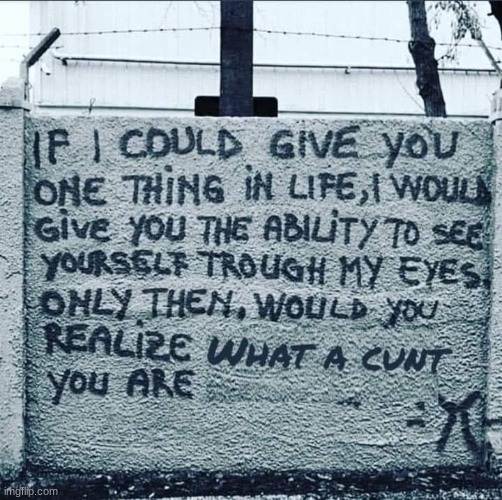 IF I COULD GIVE YOU
ONE THING IN LIFE, I WOULD
GIVE YOU THE ABILITY TO SEE
YOURSSELF TROUGH MY EYES.
ONLY THEN, WOULD YOU
REALIZE WHAT A CUNT
YOU ARE
imgflip.com